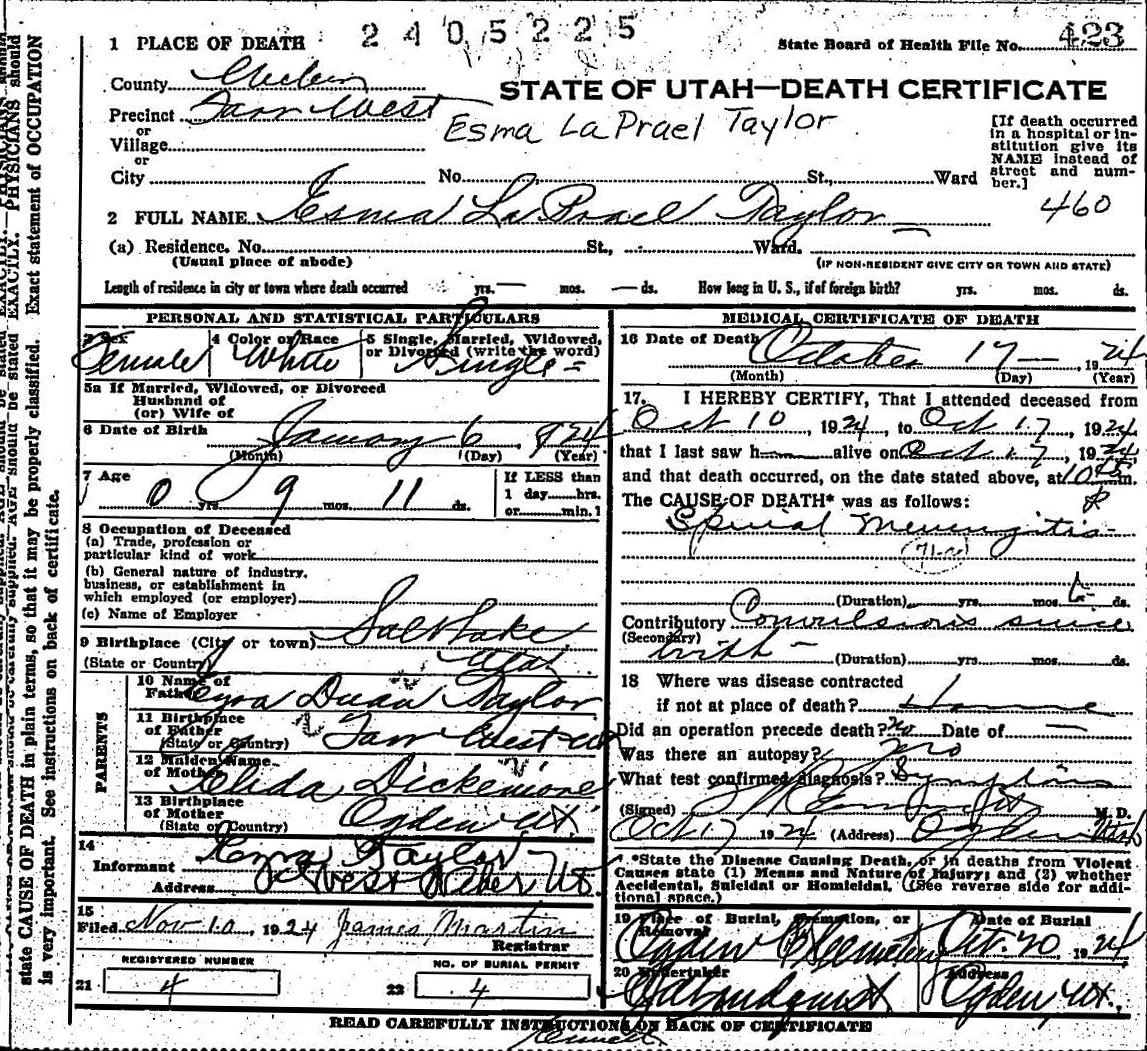 2405225
State Board of Health File No. 423
1 PLACE OF DEATH
County Weber
STATE OF UTAH—DEATH CERTIFICATE
Precinct Farr West
or
Esma LaPrael Taylor
Village
or
[If death occurred
in a hospital or in-
stitution give its
NAME instead of
street and num-
ber.]
City No. St., Ward
460
2 FULL NAME Esma LaPrael Taylor
(a) Residence. No. St., Ward.
(Usual place of abode) (IF NON-RESIDENT GIVE CITY OR TOWN AND STATE)
Length of residence in city or town where death occurred yrs. — mos. — ds. How long in U. S., if of foreign birth? yrs. mos. ds.
PERSONAL AND STATISTICAL PARTICULARS
3 Sex 4 Color or Race 5 Single, Married, Widowed,
or Divorced (write the word)
Female White Single
5a If Married, Widowed, or Divorced
Husband of
(or) Wife of
6 Date of Birth January 6, 1924
(Month) (Day) (Year)
7 Age If LESS than
0 yrs. 9 mos. 11 ds. 1 day hrs.
or min.
8 Occupation of Deceased
(a) Trade, profession or
particular kind of work
(b) General nature of industry,
business, or establishment in
which employed (or employer)
(c) Name of Employer
9 Birthplace (City or town) Salt Lake
(State or Country) Utah
PARENTS
10 Name of
Father Ezra Duan Taylor
11 Birthplace
of Father
(State or Country) Farr West Ut
12 Maiden Name
of Mother Elida Dickemore
13 Birthplace
of Mother
(State or Country) Ogden Ut
14
Informant Ezra Taylor
Address West Weber Ut.
15
Filed Nov 10, 1924 James Martin
Registrar
REGISTERED NUMBER NO. OF BURIAL PERMIT
21 4 22 4
MEDICAL CERTIFICATE OF DEATH
16 Date of Death October 17 — 1924
(Month) (Day) (Year)
17. I HEREBY CERTIFY, That I attended deceased from
Oct 10, 1924, to Oct 17, 1924,
that I last saw h alive on Oct 17, 1924
and that death occurred, on the date stated above, at 10 m.
The CAUSE OF DEATH* was as follows:
Spinal Meningitis
(Duration) yrs. mos. ds.
Contributory Convulsions since
(Secondary)
birth — (Duration) yrs. mos. ds.
18 Where was disease contracted
if not at place of death? Home
Did an operation precede death? No Date of —
Was there an autopsy? No
What test confirmed diagnosis? Symptoms
(Signed) M. D.
Oct 17 1924 (Address) Ogden Utah
*State the Disease Causing Death, or in deaths from Violent
Causes state (1) Means and Nature of Injury; and (2) whether
Accidental, Suicidal or Homicidal. (See reverse side for addi-
tional space.)
19 Place of Burial, Cremation, or
Removal Date of Burial
Ogden Cemetery Oct. 20, 1924
20 Undertaker Address
Lindquist Ogden, Ut.
READ CAREFULLY INSTRUCTIONS ON BACK OF CERTIFICATE
state CAUSE OF DEATH in plain terms, so that it may be properly classified. Exact statement of OCCUPATION
is very important. See instructions on back of certificate.